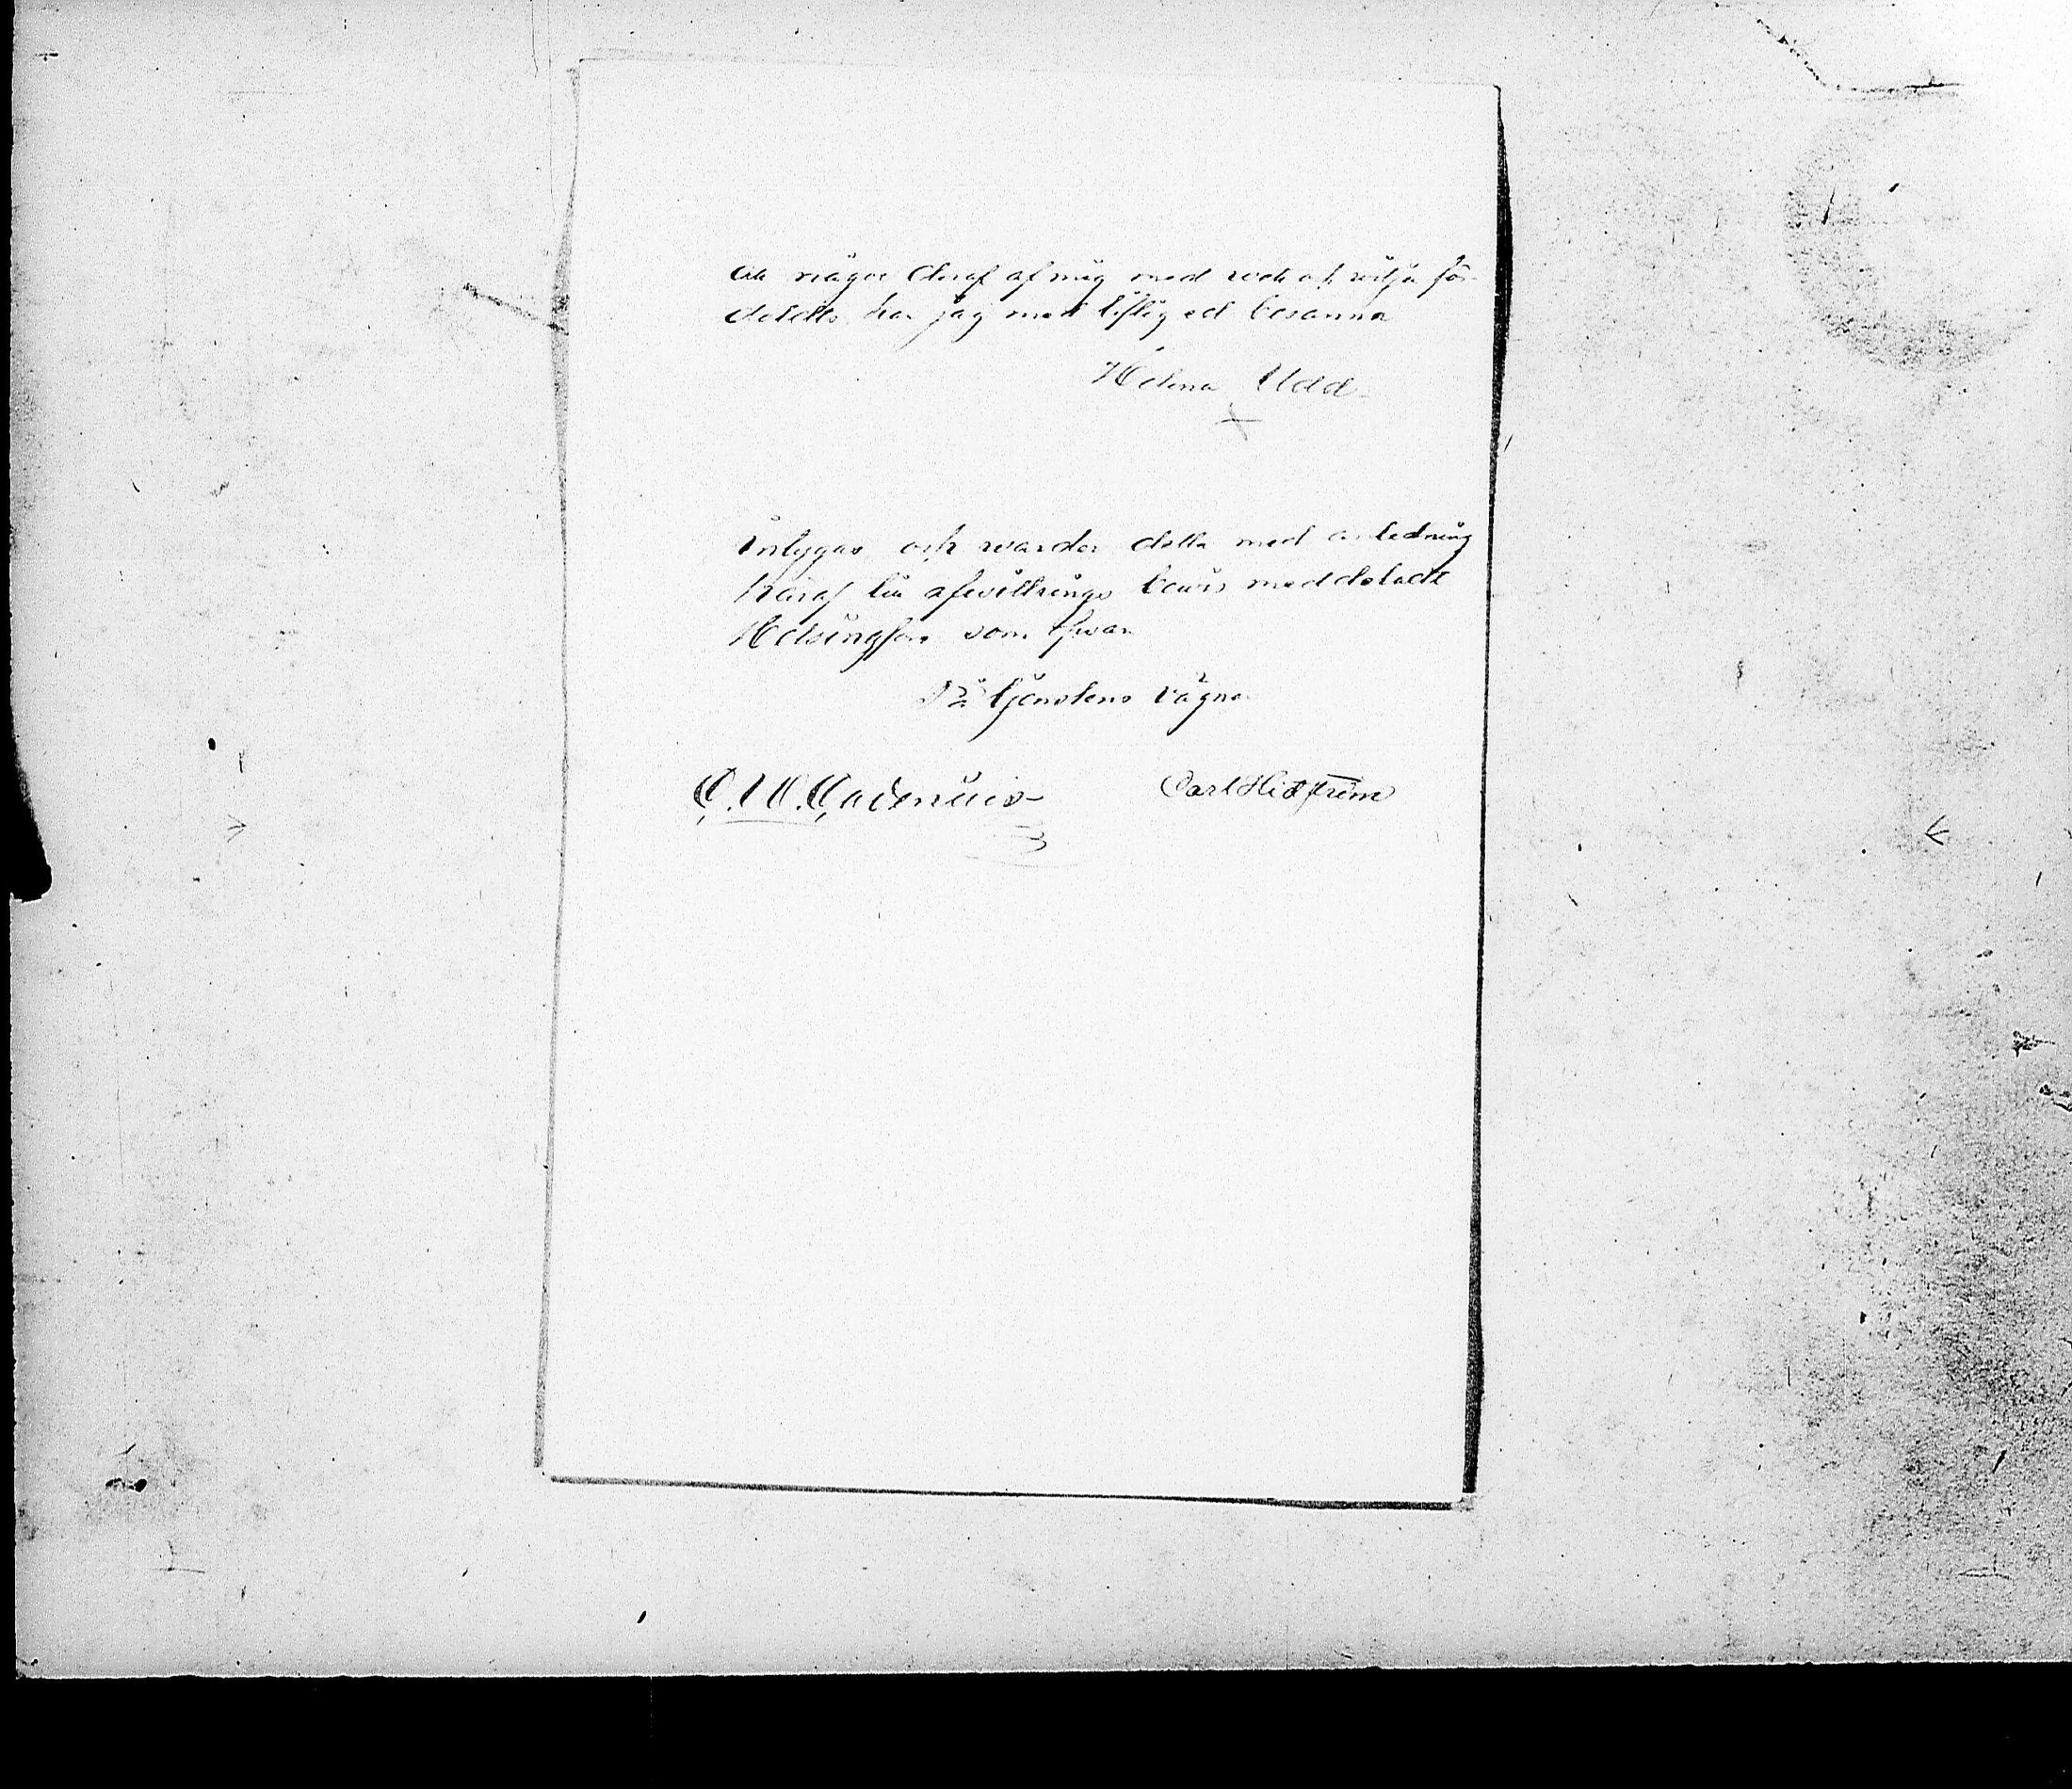 eller något deraf af mig med vett och vilja för-
doldts kan jag med liflig ed besanna
Helena Udd
Intygas, och varder detta med anledning
häraf till afvittrings bevis meddeladt
Helsingfors som ofvan
På tjenstens vägnar
Carl Hedström